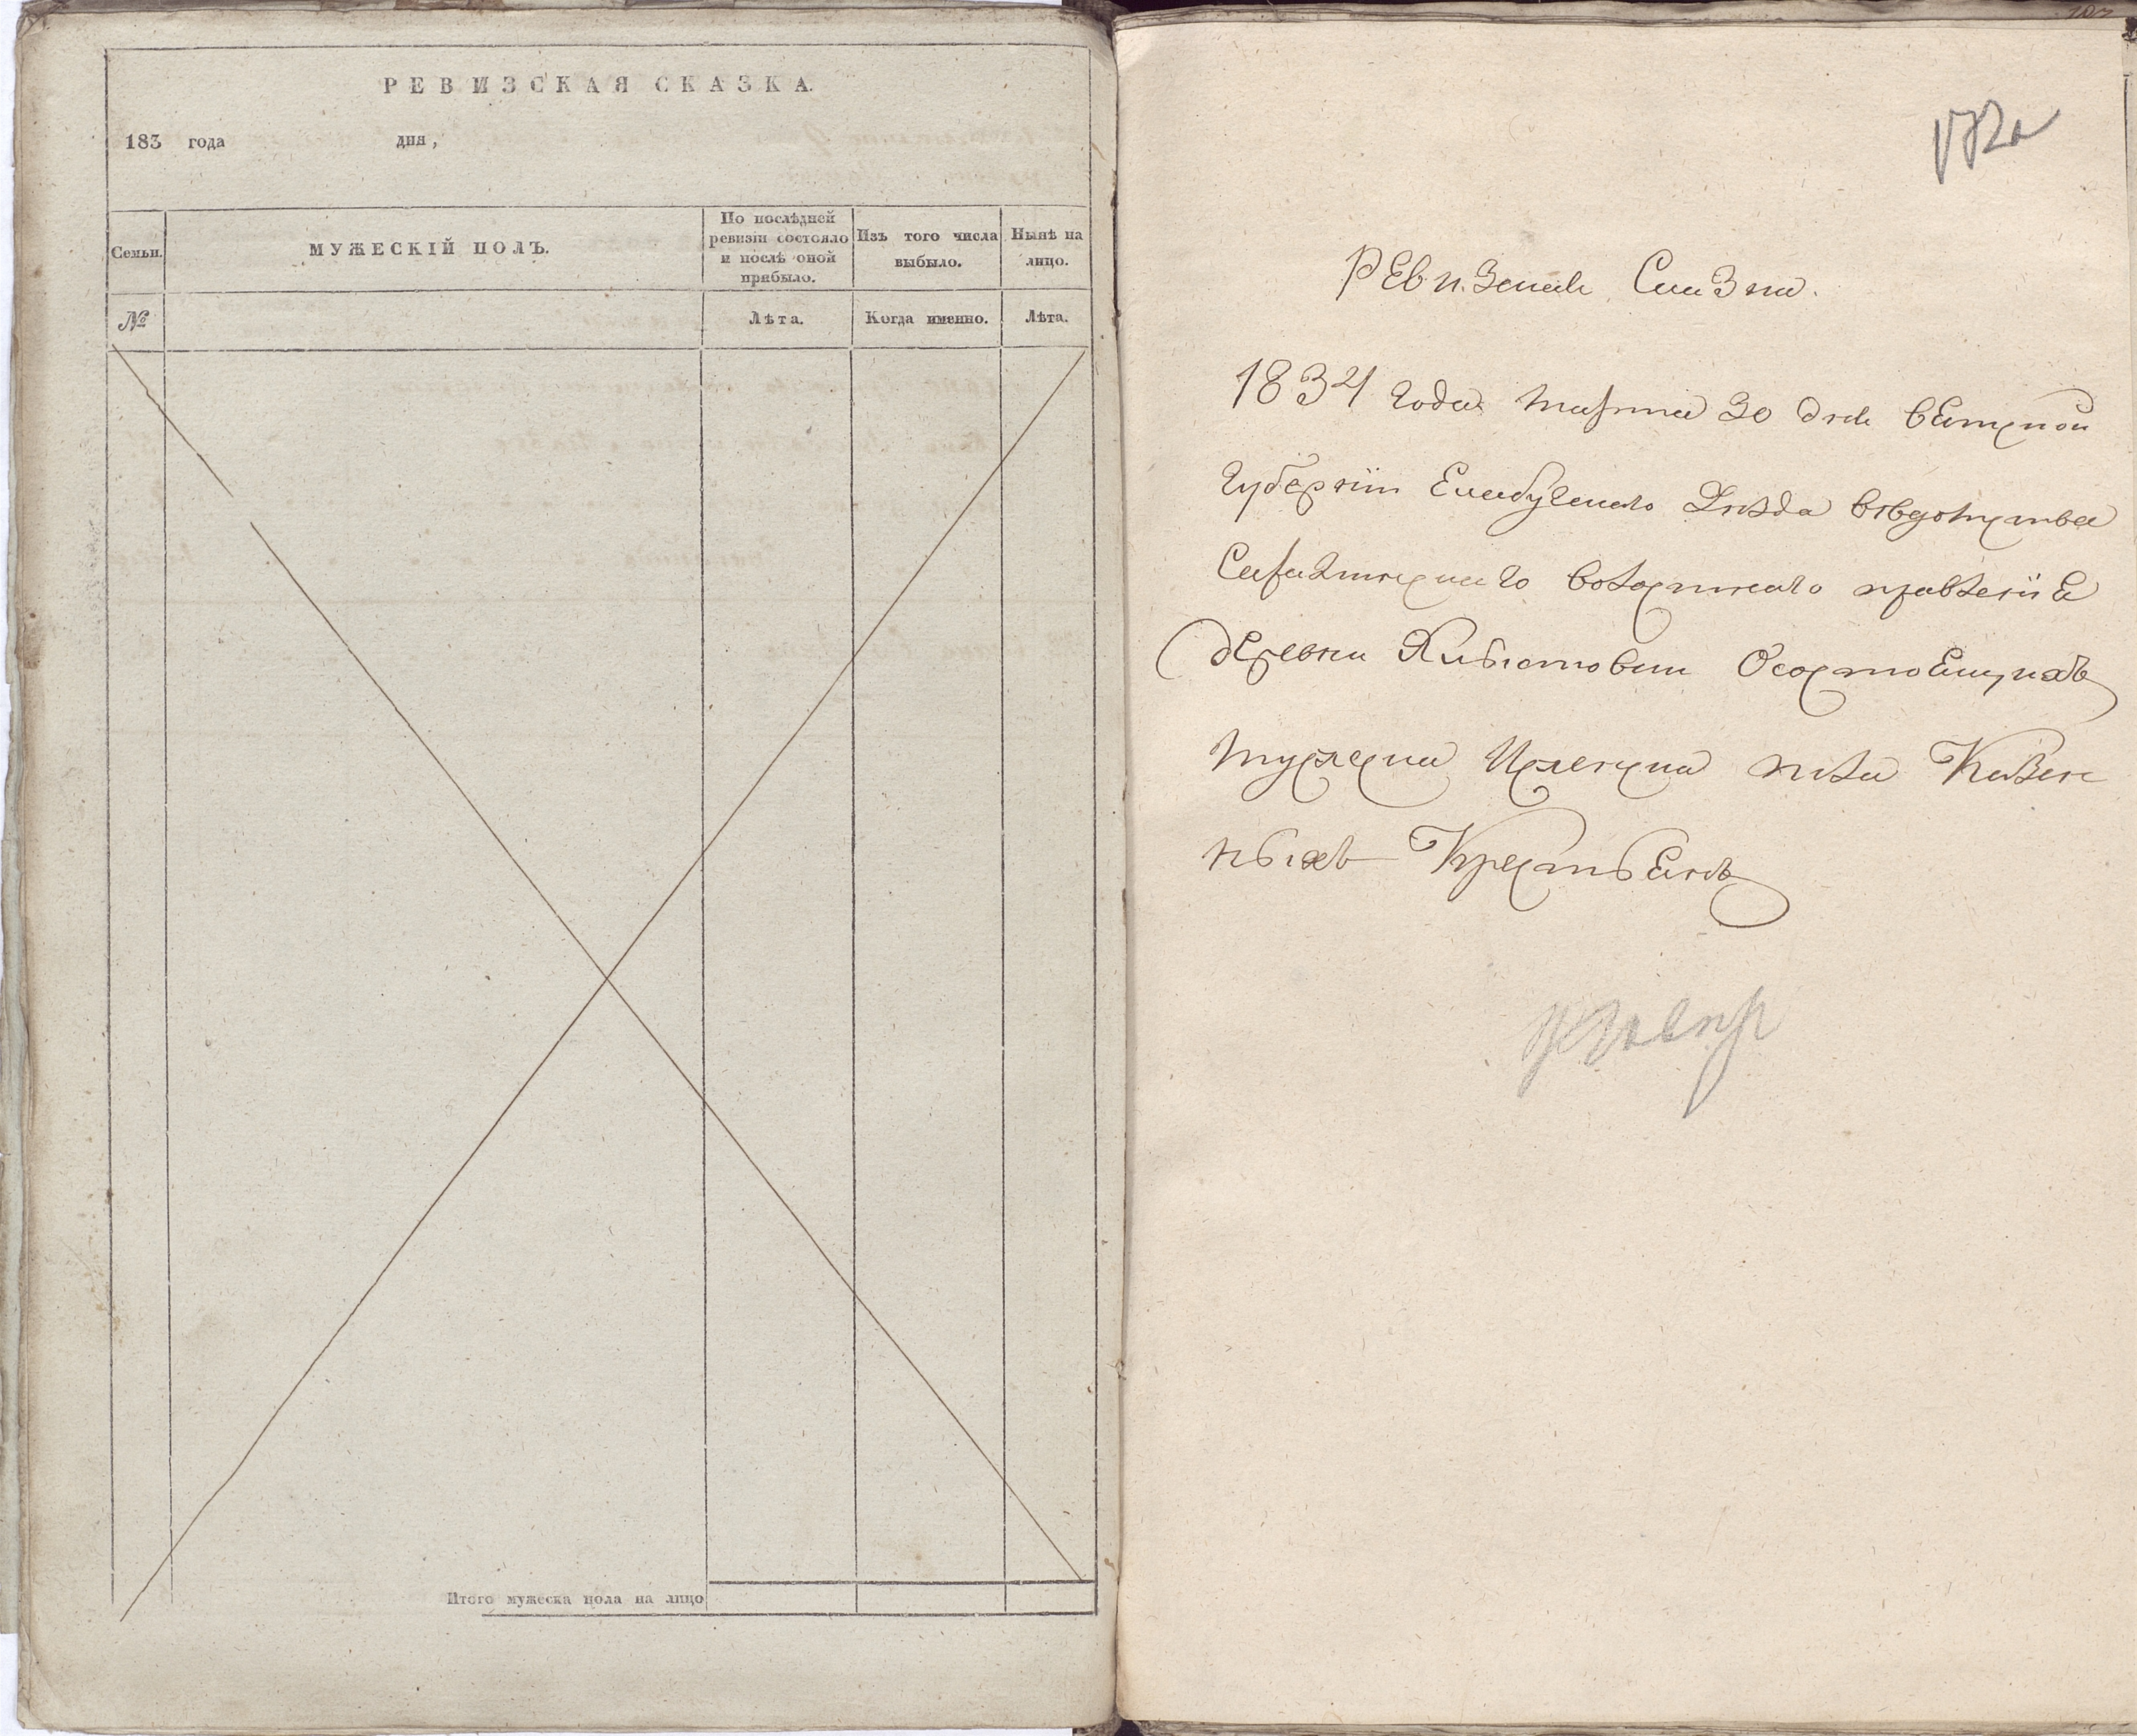 РЕВИЗСКАЯ СКАЗКА.
183 года дня,
Семьи.
МУЖЕСКІЙ ПОЛЪ.
По послѣдней
ревизіи состояло
и послѣ оной
прибыло.
Изъ того числа
выбыло.
Нынѣ на
лицо.
№
Лѣта.
Когда именно.
Лѣта.
Итого мужеска пола на лицо
172а
Ревизская Сказка.
1834 года марта 30 дня вятской
Губерніи Елабугскаго уѣзда вѣдомства
волостнаго правленіе
деревни О состоящихъ
мужеска женска пола Казен
ныхъ Крестьянъ